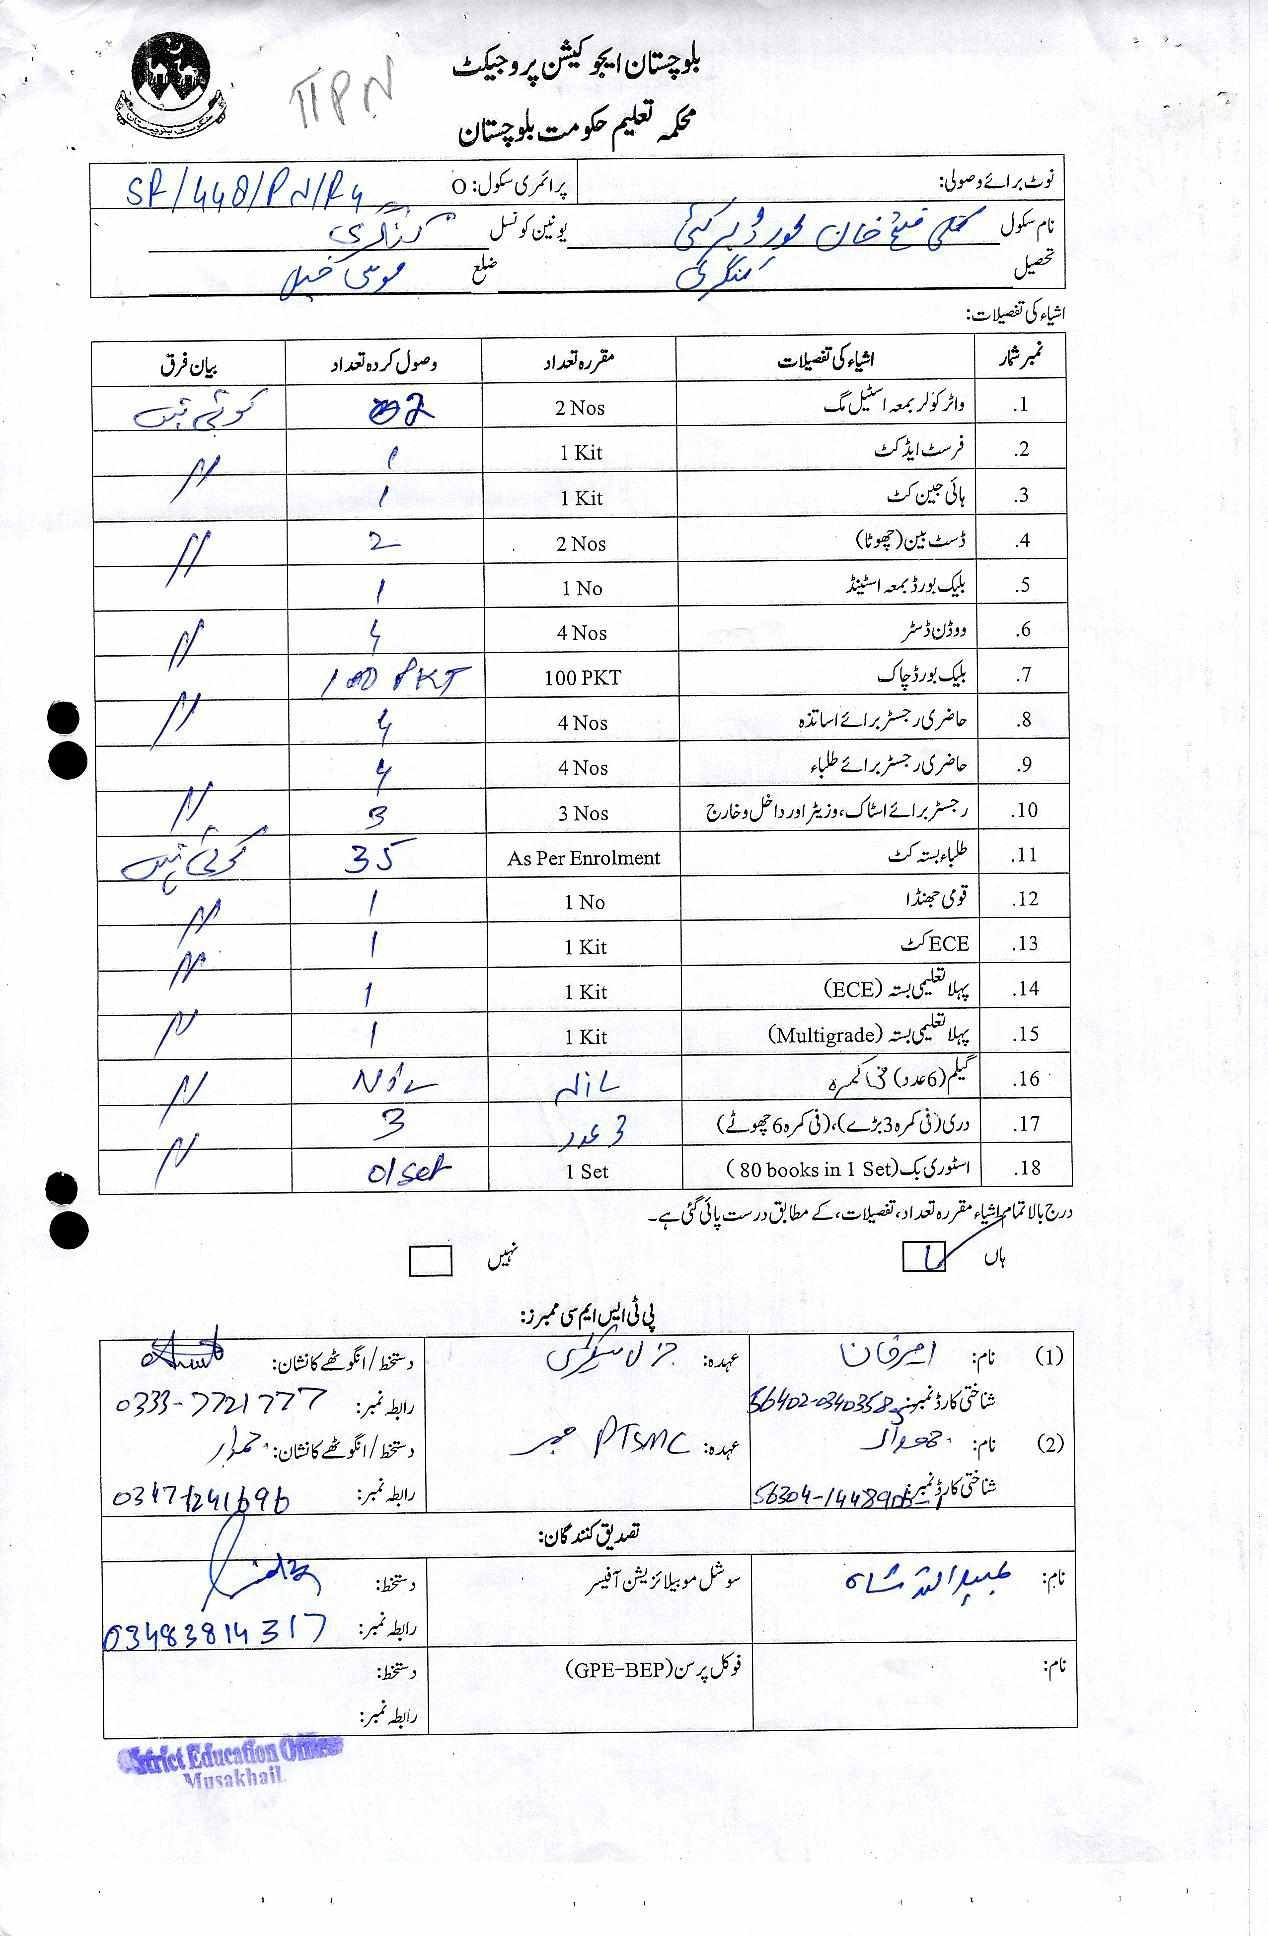 بلوچستان ایجوکیشن پروجیکٹ
محکمہ تعلیم حکومت بلوچستان
نوٹ برائے وصولی: پرائمری سکول: O
نام سکول کلی فتح خان یونین کونسل
تحصیل کنگری ضلع موسی خیل
اشیاء کی تفصیلات:
نمبر شمار اشیاء کی تفصیلات مقررہ تعداد وصول کردہ تعداد بیان فرق
1. واٹر کولر بمعہ اسٹیل مگ 2 Nos 02 کوئی نہیں
2. فرسٹ ایڈ کٹ 1 Kit 1 //
3. ہائی جین کٹ 1 Kit 1
4. ڈسٹ بین (چھوٹا) 2 Nos 2 //
5. بلیک بورڈ بمعہ اسٹینڈ 1 No 1
6. ووڈن ڈسٹر 4 Nos 4 //
7. بلیک بورڈ چاک 100 PKT 100 PKT
8. حاضری رجسٹر برائے اساتذہ 4 Nos 4 //
9. حاضری رجسٹر برائے طلباء 4 Nos 4
10. رجسٹر برائے اسٹاک، وزیٹر اور داخل و خارج 3 Nos 3 //
11. طلباء بستہ کٹ As Per Enrolment 35 کوئی نہیں
12. قومی جھنڈا 1 No 1 //
13. ECE کٹ 1 Kit 1 //
14. پہلا تعلیمی بستہ (ECE) 1 Kit 1
15. پہلا تعلیمی بستہ (Multigrade) 1 Kit 1 //
16. گلیم (6 عدد) فی کمرہ Nil Nil //
17. دری (فی کمرہ 3 بڑے)، (فی کمرہ 6 چھوٹے) 3 عدد 3
18. اسٹوری بک (80 books in 1 Set) 1 Set 01 set //
درج بالا تمام اشیاء مقررہ تعداد، تفصیلات، کے مطابق درست پائی گئی ہے۔
ہاں نہیں
پی ٹی ایس ایم سی ممبرز:
(1) نام: امیر خان عہدہ: جنرل سیکرٹری دستخط/انگوٹھے کا نشان:
شناختی کارڈ نمبر: رابطہ نمبر: 0333-7721777
(2) نام: عہدہ: PTSMC ممبر دستخط/انگوٹھے کا نشان:
شناختی کارڈ نمبر: رابطہ نمبر: 0347-1241696
تصدیق کنندگان:
نام: عبید اللہ شاہ سوشل موبیلائزیشن آفیسر دستخط:
رابطہ نمبر: 03483814317
نام: فوکل پرسن (GPE-BEP) دستخط:
رابطہ نمبر:
District Education Officer
Musakhail